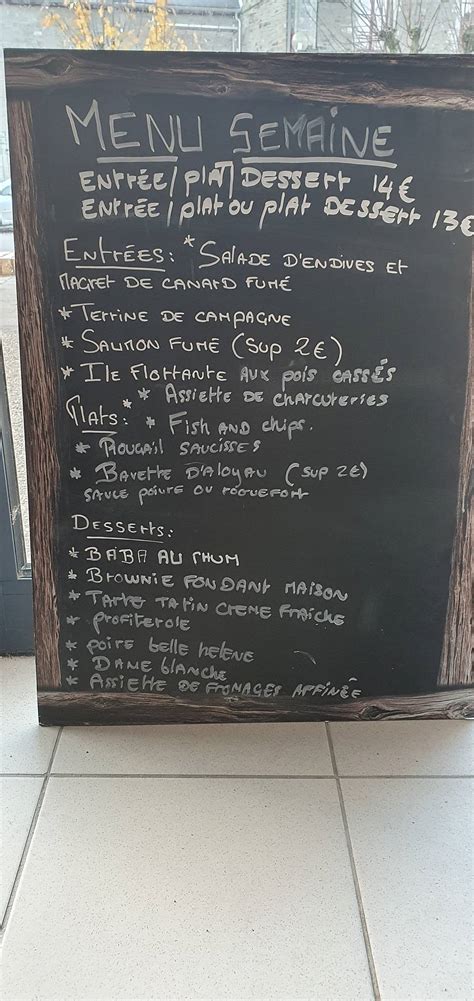 MENU SEMAINE
ENTRÉE/PlAT/DESSERT 14€
ENTRÉE/plAT OU plAT DESSERT 13€
ENTRÉES: * SALADE D'ENDIVES ET
MAGRET DE CANARD FUMÉ
* TERRINE DE CAMPAGNE
* SAUMON FUMÉ (SUP 2€)
* ILE FLOTTANTE AUX pois CASSÉS
* * ASSIETTE DE CHARCUTERIES
Plats: * FISH AND chips.
* ROUGAIL SAUCISSES
* BAVETTE D'ALOYAU (SUP 2€)
SAUCE POIVRE OU ROQUEFORT
DESSERTS:
* BABA AU RHUM
* BROWNIE FONDANT MAISON
* TARTE TATIN CREME FRAICHE
* profiterole
* poire belle helene
* DAME blanche
* ASSIETTE DE FROMAGES AFFINÉE